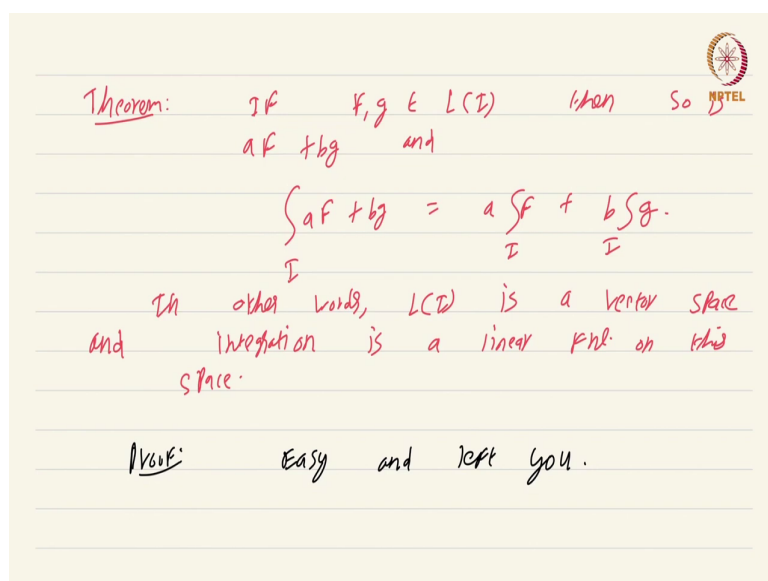 Theorem: If F, g ∈ L(I) then so is
NPTEL
aF + bg and
∫_I aF + bg = a ∫_I F + b ∫_I g.
In other words, L(I) is a vector space
and integration is a linear Fnl. on this
space.
Proof: Easy and left you.